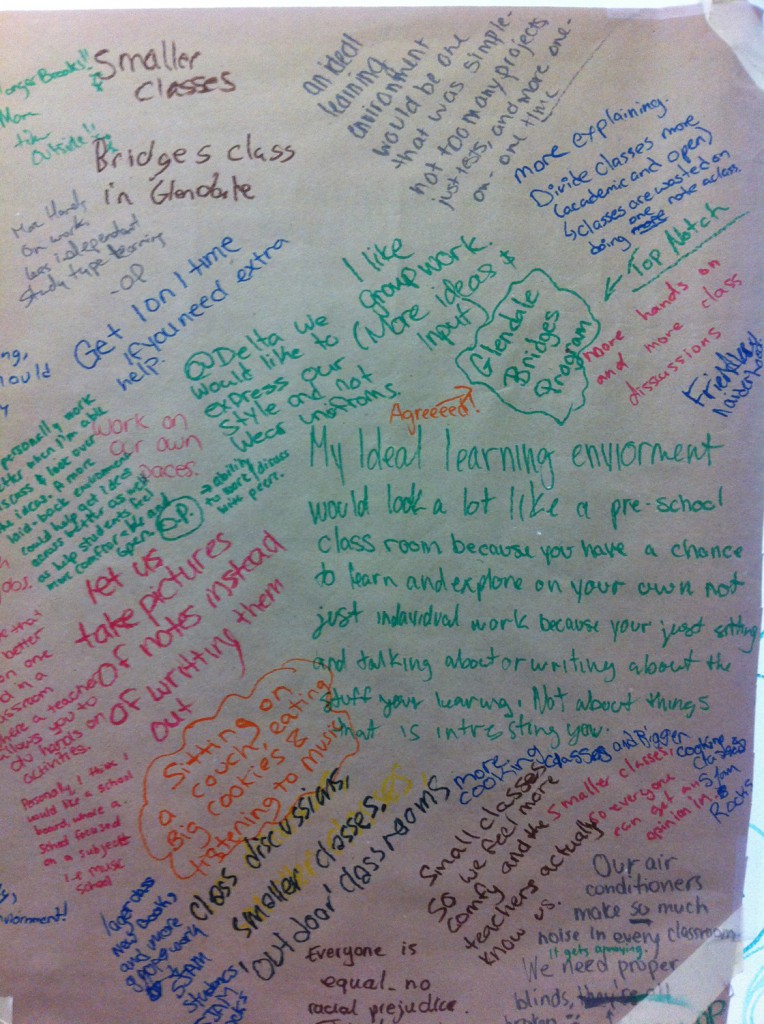 Smaller
classes
Bridges class
in Glendale
an ideal
learning
environment
would be one
that was simple-
not too many projects
just tests, and more one-
on- one time
more explaining.
Divide classes more
(academic and open)
classes are wasted on
doing one note a class.
Top Notch
Outside!!
on work
less independent
study type learning
-OP
Get 1 on 1 time
if you need extra
help.
I like
group work.
(More ideas &
Input)
@Delta we
would like to
express our
style and not
wear
Glendale
Bridges
Program
Agreeeed!
more hands on
and more class
disscussions
work on
our own
paces.
personally work
when I'm able
discuss & look over
ideas. A more
laid-back
could help get ideas
across better as well
as help students feel
more comfortable and
open
O.P.
→ ability
to work/discuss
with peers.
My Ideal learning enviorment
would look a lot like a pre-school
class room because you have a chance
to learn and explore on your own not
just indavidual work because your just sitting
and talking about or writing about the
stuff your learing. Not about things
that is intresting you.
let us
take pictures
Of notes instead
of writting them
out
better
on one
in a
classroom
where a teacher
allows you to
do hands on
activities.
Personally, I think I
would like a school
board, where a
school focused
on a subject
i.e music
school
Sitting on
a couch, eating
Big cookies &
listening to music
class discussions,
smaller classes,
'outdoor' classrooms
more
cooking
classes and Bigger
cooking
classes
Rocks
Small classes
So we feel more
comfy and the
teachers actually
know us.
smaller classes,
so everyone
can get an
opinion in.
New Books
and more
SJAM
students
SJAM
Everyone is
equal - no
racial prejudice.
Our air
conditioners
make so much
noise in every classroom
it gets annoying.
We need proper
blinds,